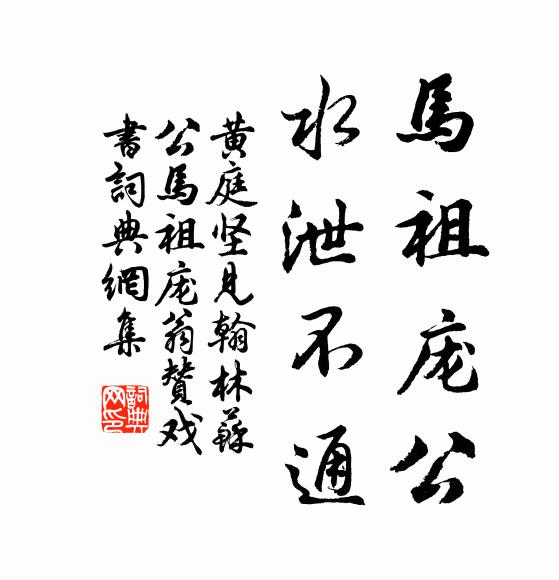 馬祖庞公
水泄不通
黄庭坚见翰林蘇
公馬祖庞翁赞戏
書詞典網集
詞典
网印